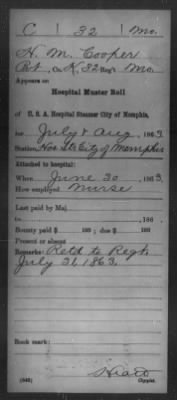 C | 32 | Mo.
H. M. Cooper
Pvt., Co. K, 32 Reg't Mo.
Appears on
Hospital Muster Roll
of U. S. A. Hospital Steamer City of Memphis,
for July & Aug, 1863.
Station, Hos. Str City of Memphis
Attached to hospital:
When June 30, 1863.
How employed Nurse
Last paid by Maj.
to , 186 .
Bounty paid $ 100; due $ 100
Present or absent
Remarks: Retd to Regt.
July 31, 1863.
Book mark:
(543)
Copyist.